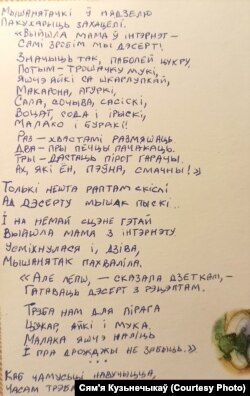 Мышанятачкі ў нядзелю
Пакухарыць захацелі.
«Выйшла мама ў інтэрнэт –
Самі зробім мы дэсерт!
Значыць так, паболей цукру,
Потым – трошачку мукі,
Яшчэ яйкі са шкарлупкай,
Макарона, агуркі,
Сала, сочыва, сасіскі,
Воцат, сода і ірыскі,
Малако і буракі!
Раз – хвастамі размяшаць
Два – пры печцы пачакаць.
Тры – дастаць пірог гарачы!
Ах, які ён, пэўна, смачны!»
Толькі нешта раптам скіслі
Ад дэсерту мышак пыскі..
І на немай сцэне гэтай
Выйшла мама з інтэрнэту
Усміхнулася і, дзіва,
Мышанятак пахваліла.
«Але лепш, – сказала дзеткам, –
Гатаваць дэсерт з рэцэптам.
Трэба нам для пірага
Цукар, яйкі і мука.
Малака яшчэ наліць
І пра дрожджы не забыць.»
Каб чамусьці навучыцца,
Часам трэба
Сям'я Кузьнечыкаў (Courtesy Photo)